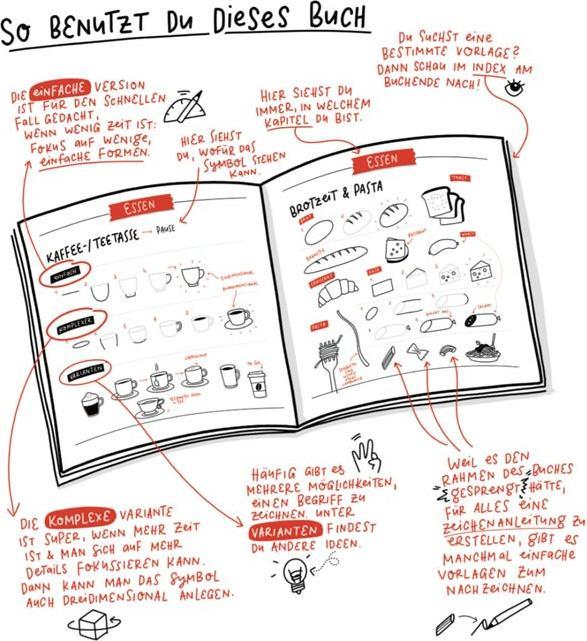 SO BENUTZT DU DIESES BUCH
DIE EINFACHE VERSION
IST FÜR DEN SCHNELLEN
FALL GEDACHT,
WENN WENIG ZEIT IST:
FOKUS AUF WENIGE,
EINFACHE FORMEN.
HIER SIEHST
DU, WOFÜR DAS
SYMBOL STEHEN
KANN.
HIER SIEHST DU
IMMER, IN WELCHEM
KAPITEL DU BIST.
DU SUCHST EINE
BESTIMMTE VORLAGE?
DANN SCHAU IM INDEX AM
BUCHENDE NACH!
ESSEN
KAFFEE-/TEETASSE → PAUSE
EINFACH
KOMPLEXER
VARIANTEN
CAPPUCCINO
TO GO
ESSEN
BROTZEIT & PASTA
BROT
TOAST
BAGUETTE
CROISSANT
KÄSE
WURST
SALAMI
PASTA
DIE KOMPLEXE VARIANTE
IST SUPER, WENN MEHR ZEIT
IST & MAN SICH AUF MEHR
DETAILS FOKUSSIEREN KANN.
DANN KANN MAN DAS SYMBOL
AUCH DREIDIMENSIONAL ANLEGEN.
HÄUFIG GIBT ES
MEHRERE MÖGLICHKEITEN,
EINEN BEGRIFF ZU
ZEICHNEN. UNTER
VARIANTEN FINDEST
DU ANDERE IDEEN.
WEIL ES DEN
RAHMEN DES BUCHES
GESPRENGT HÄTTE,
FÜR ALLES EINE
ZEICHENANLEITUNG ZU
ERSTELLEN, GIBT ES
MANCHMAL EINFACHE
VORLAGEN ZUM
NACHZEICHNEN.